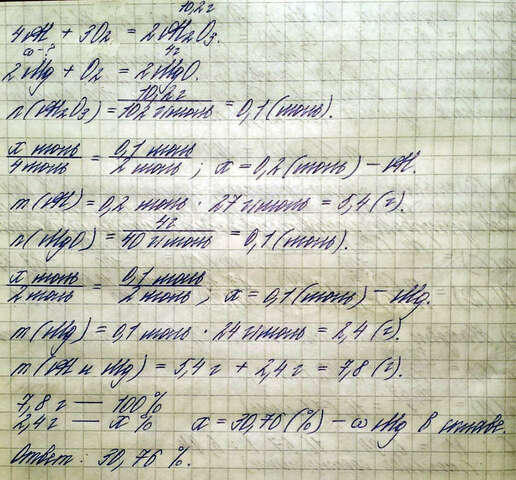 10,2 г
4Al + 3O₂ = 2Al₂O₃.
ω-? 4г
2Mg + O₂ = 2MgO.
n(Al₂O₃) = 10,2г / 102 г/моль = 0,1 (моль).
x моль / 4 моль = 0,1 моль / 2 моль ; x = 0,2 (моль) – Al.
m(Al) = 0,2 моль · 27 г/моль = 5,4 (г).
n(MgO) = 4г / 40 г/моль = 0,1 (моль).
x моль / 2 моль = 0,1 моль / 2 моль ; x = 0,1 (моль) – Mg.
m(Mg) = 0,1 моль · 24 г/моль = 2,4 (г).
m(Al и Mg) = 5,4 г + 2,4 г = 7,8 (г).
7,8 г — 100 %
2,4 г — x % x = 30,76 (%) – ω Mg в сплаве.
Ответ: 30,76 %.